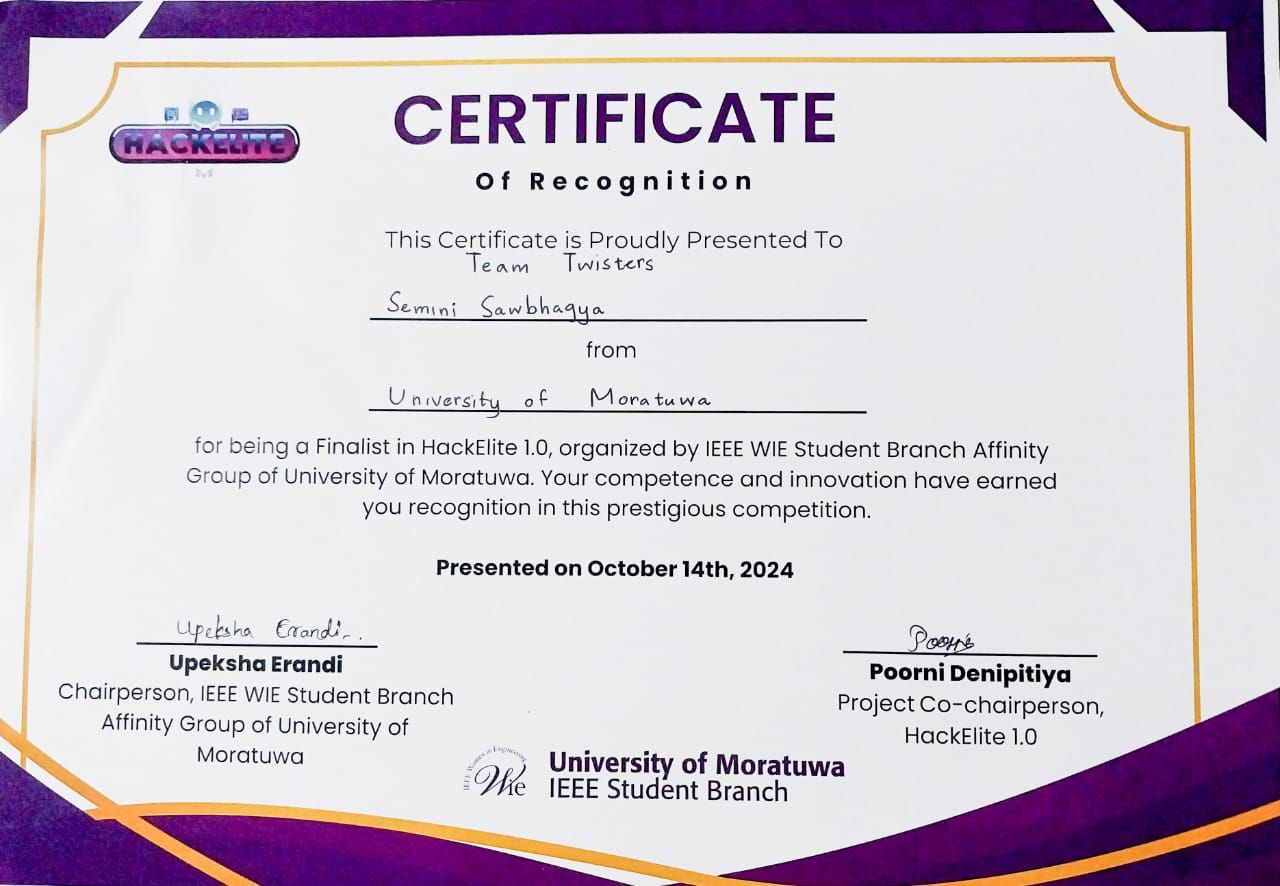 HACKELITE
CERTIFICATE
Of Recognition
This Certificate is Proudly Presented To
Team Twisters
Semini Sawbhagya
from
University of Moratuwa
for being a Finalist in HackElite 1.0, organized by IEEE WIE Student Branch Affinity
Group of University of Moratuwa. Your competence and innovation have earned
you recognition in this prestigious competition.
Presented on October 14th, 2024
Upeksha Erandi
Upeksha Erandi
Chairperson, IEEE WIE Student Branch
Affinity Group of University of
Moratuwa
Poorni Denipitiya
Project Co-chairperson,
HackElite 1.0
IEEE Women in Engineering
Wie
University of Moratuwa
IEEE Student Branch